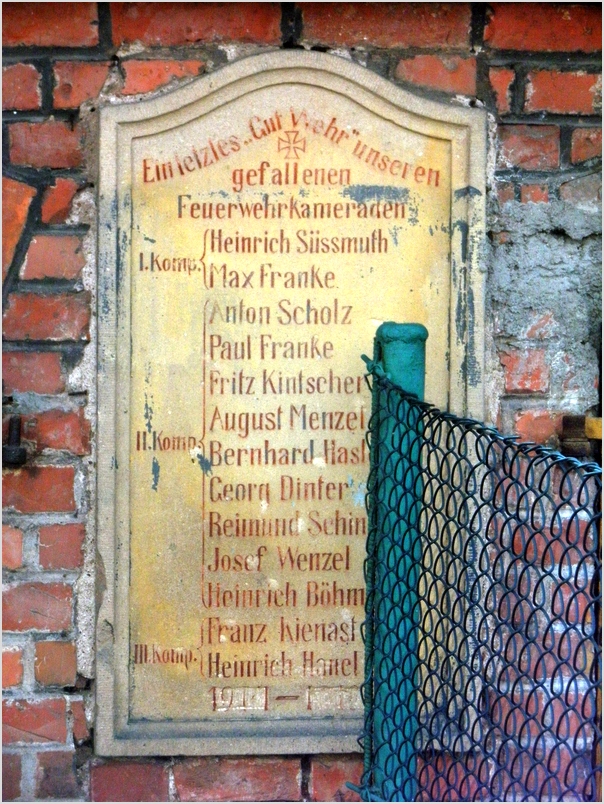 Ein letztes „Gut Wehr" unseren
gefallenen
Feuerwehrkameraden
I. Komp. Heinrich Süssmuth
Max Franke.
Anton Scholz
Paul Franke
Fritz Kintscher
August Menzel
II. Komp. Bernhard
Georg
Reimund
Josef Wenzel
Heinrich Böhm
Franz Kienast
III. Komp. Heinrich